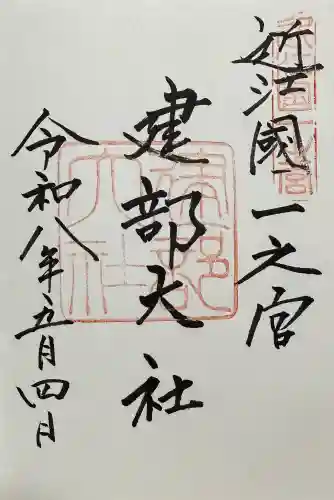 近江國一之宮
建部大社
令和八年五月四日
近江國一之宮
建部大社